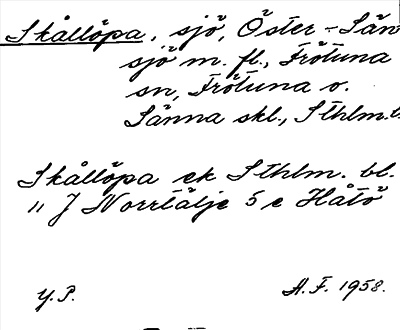 Skållöpa, sjö, Öster-Län
sjö m. fl., Frötuna
sn, Frötuna o.
Länna skl., Sthlm.l.
Skållöpa ek Sthlm. bl.
" J Norrtälje 5 e Håtö
Y.P. A.F. 1958.